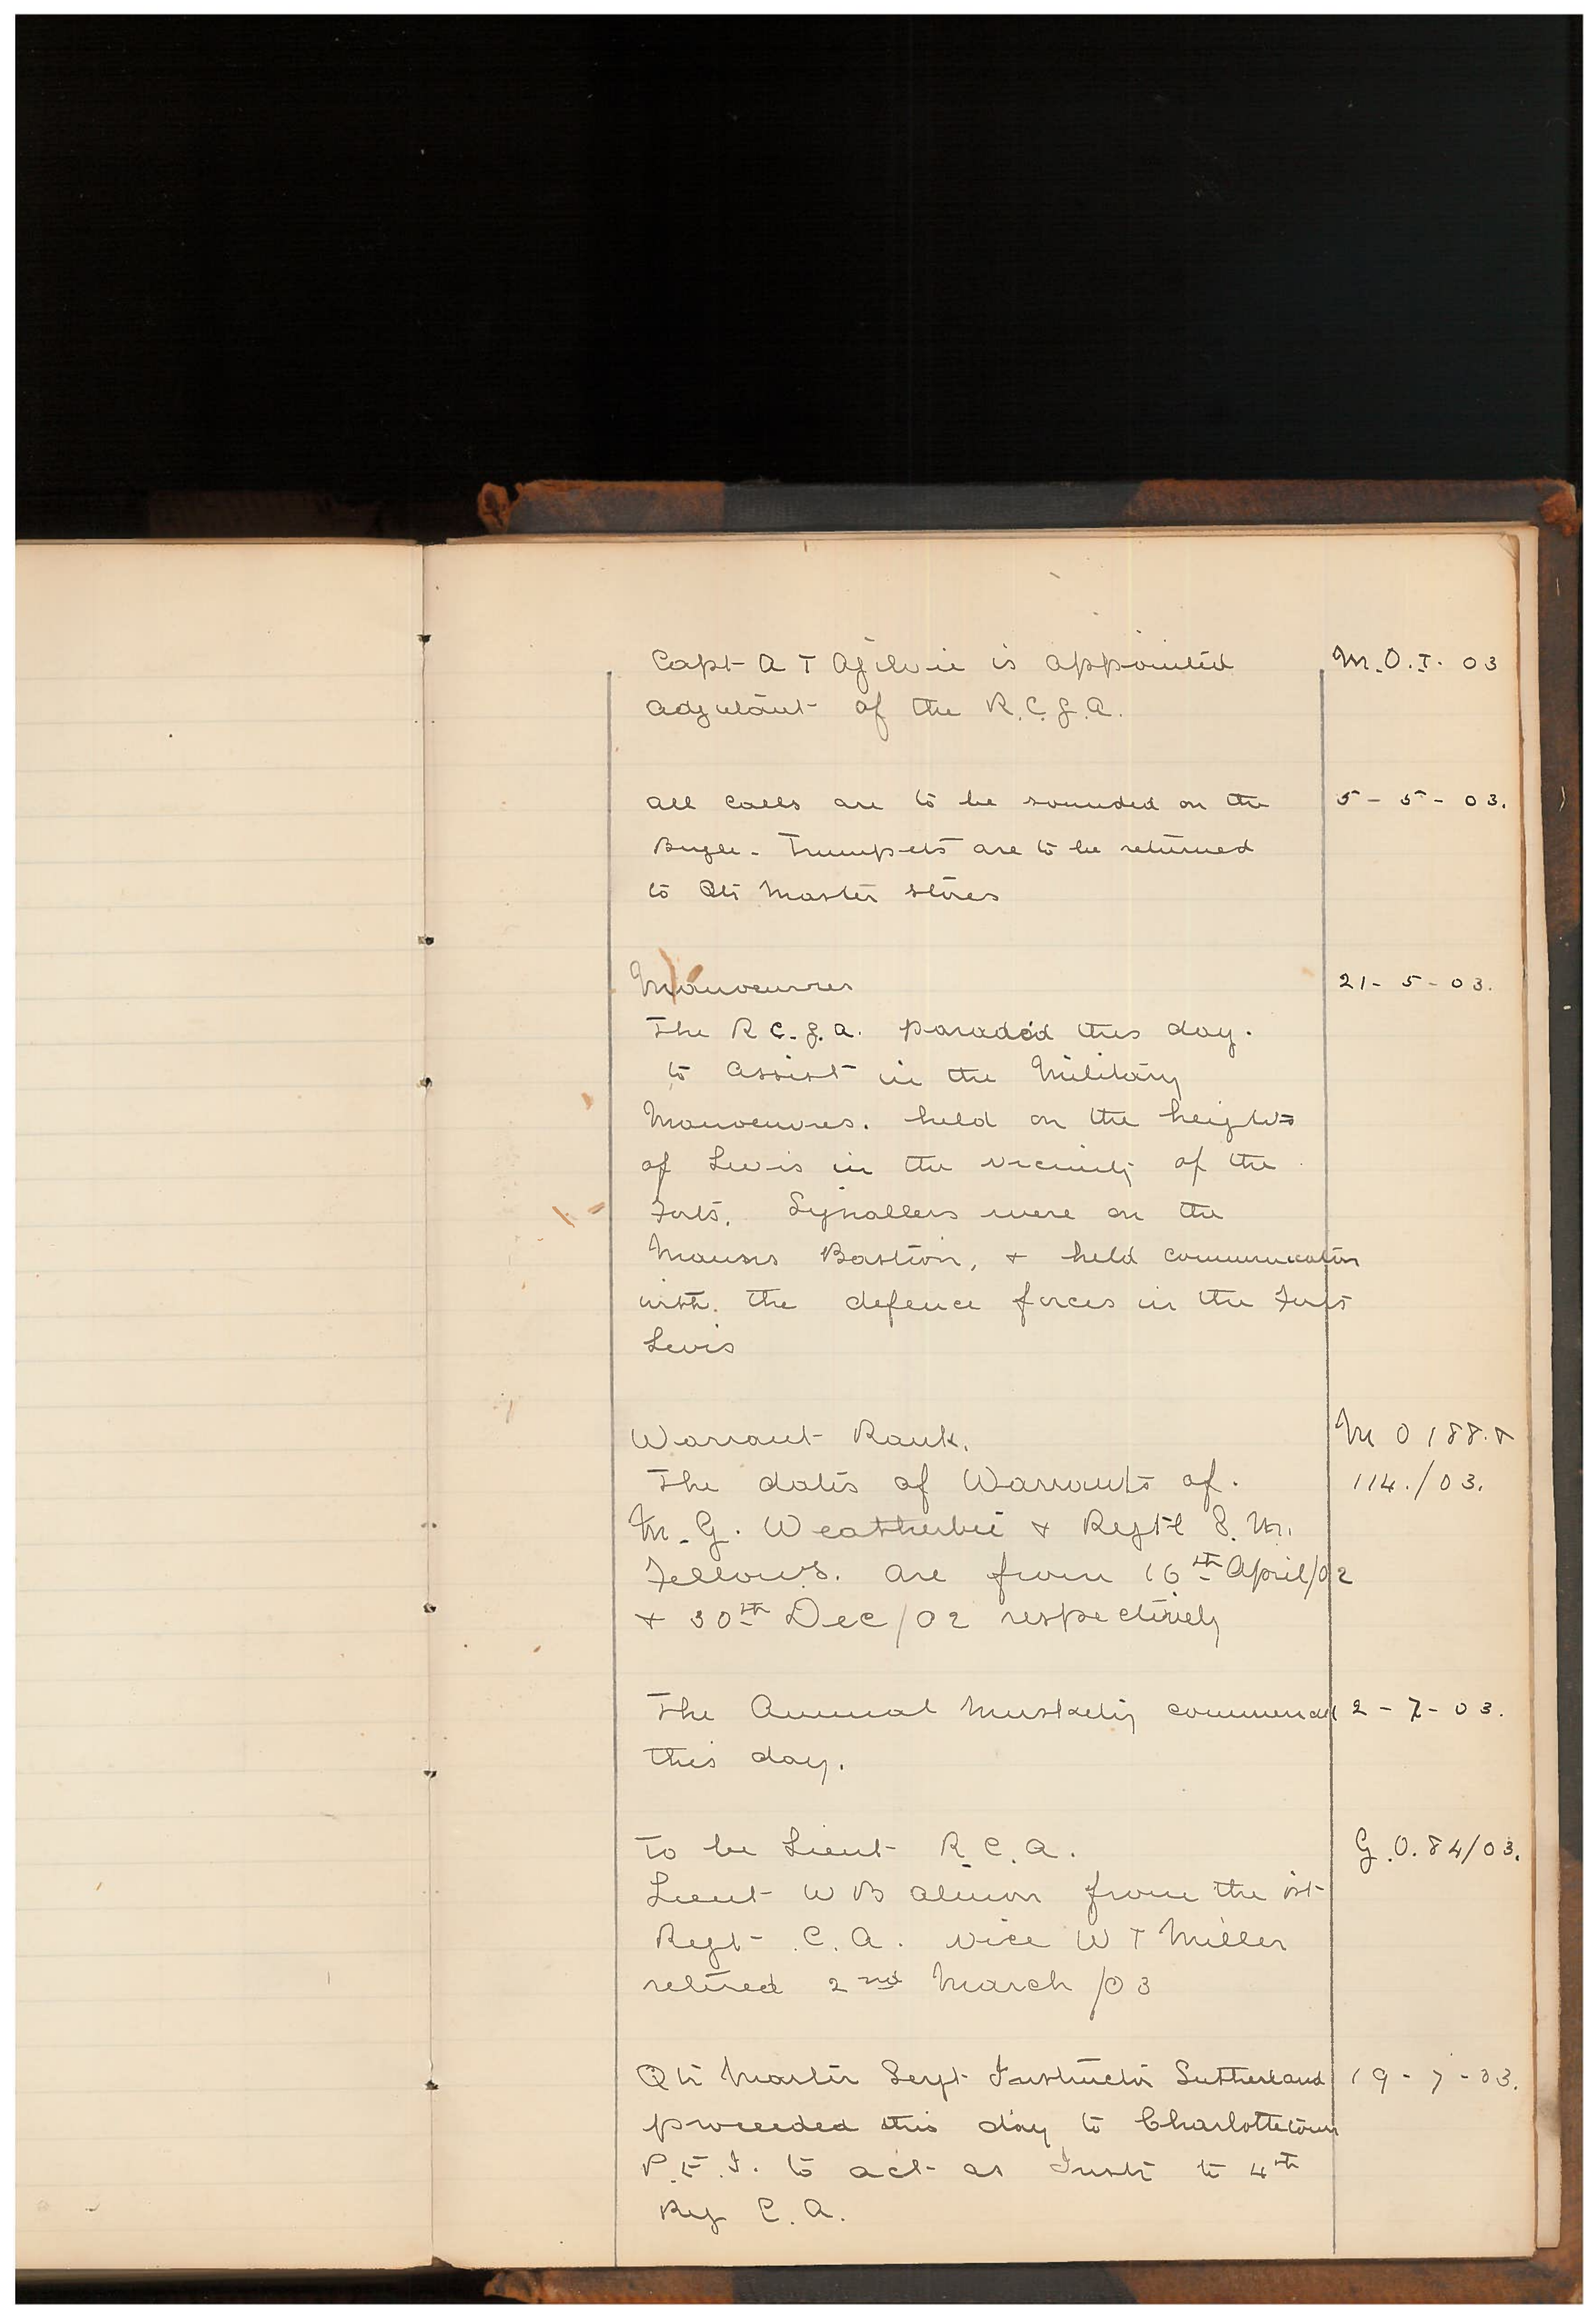 Capt A T Ogilvie is appointed M.O.I. 03
adjutant of the R.C.G.A.
All calls are to be sounded on the 5 - 5 - 03.
Bugle - Trumpets are to be returned
to Qtr Master stores
Manoeuvres 21 - 5 - 03.
The R C. G. A. paraded this day.
to assist in the Military
Manoeuvres. held on the heights
of Levis in the vicinity of the
Forts. Signallers were on the
Bastion, & held communication
with. the defence forces in the Forts
Levis
Warrant Rank. M O 188. &
The dates of Warrants of. 114./03.
M. G. Weatherbie & Regtl S. M.
Fellows. are from 16th April/02
& 30th Dec/02 respectively
The Annual Musketry commenced 2 - 7 - 03.
this day.
To be Lieut R.C.A. G.O. 84/03.
Lieut W B Almon from the 1st
Regt C.A. vice W T Miller
retired 2nd March /03
Qtr Master Sergt Instructor Sutherland 19 - 7 - 03.
proceeded this day to Charlottetown
P.E.I. to act as Instr to 4th
Reg C.A.